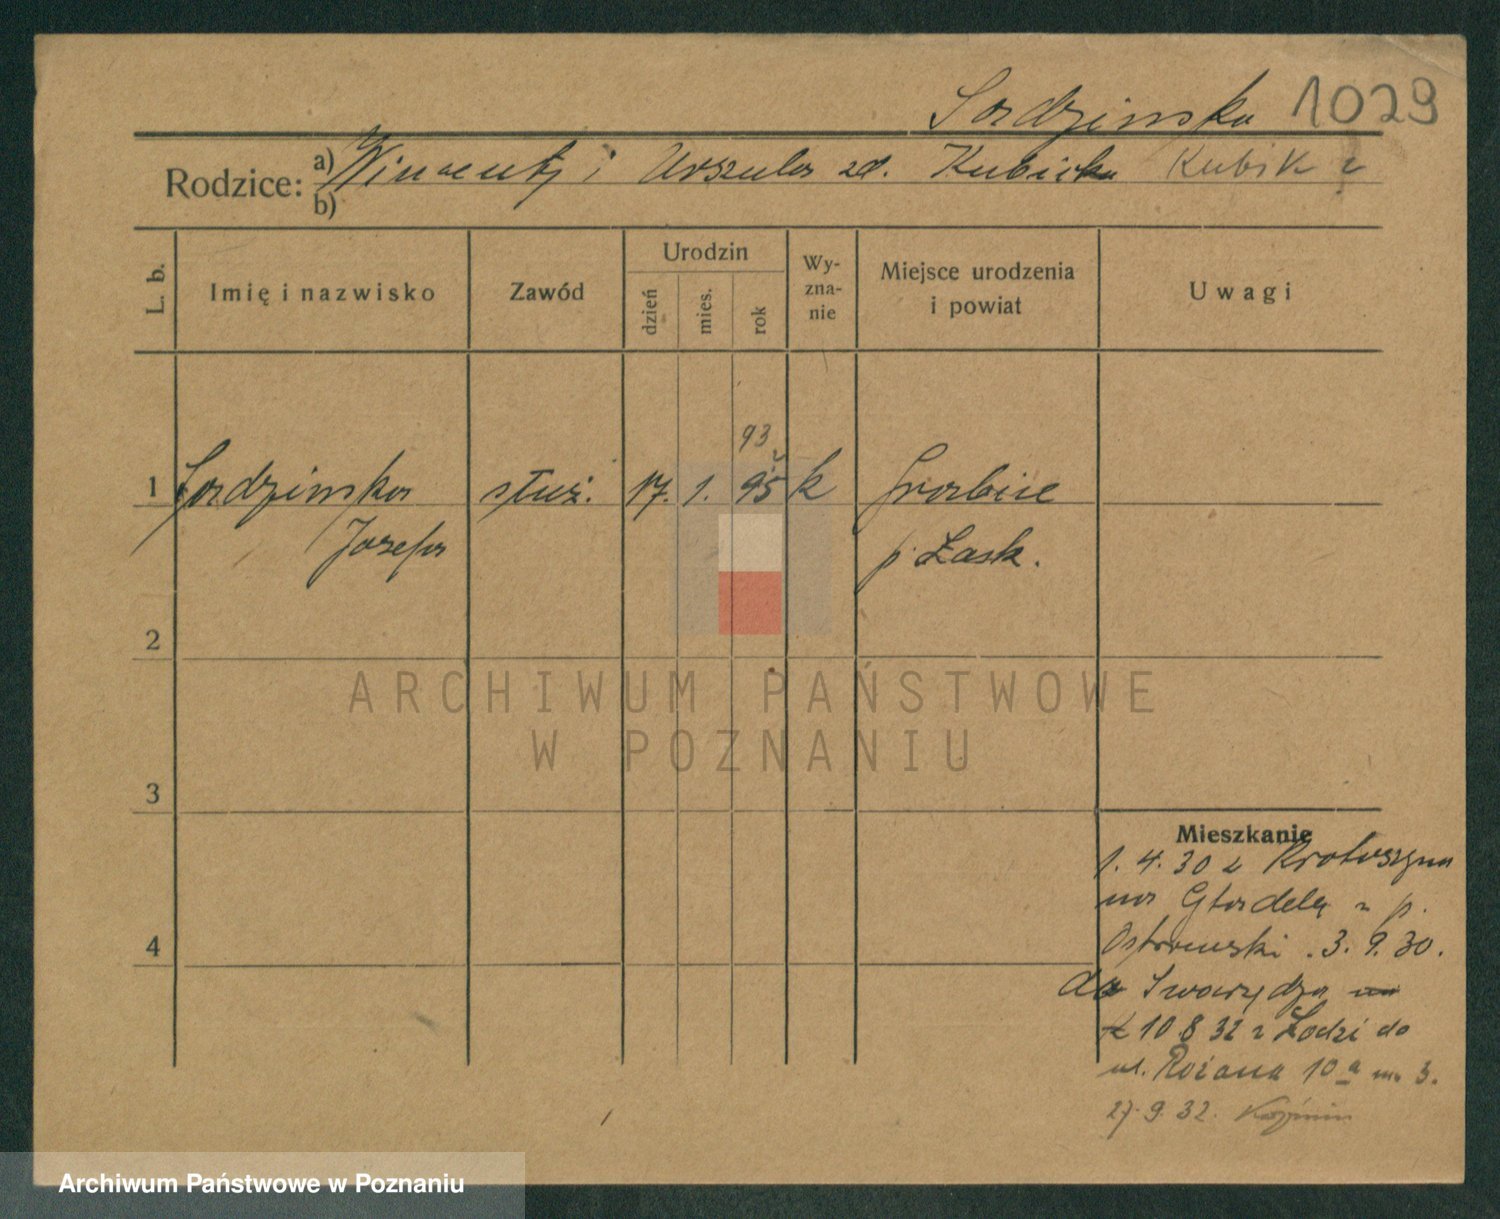 Sordzinska 1029
Rodzice: a) Wincenty i Urszula zd. Kubicka Kubik
b)
L. b.
Imię i nazwisko
Zawód
Urodzin
dzień
mies.
rok
Wy-
zna-
nie
Miejsce urodzenia
i powiat
Uwagi
93
1 Sordzinska służ. 17. 1. 95 k Grabice
Josefa p. Łask.
2
3
4
ARCHIWUM PAŃSTWOWE
W POZNANIU
Mieszkanie
1. 4. 30 z Krotoszyna
na p.
Ostrowski. 3. 9. 30.
do Swarzędza
10 8 32 z Łodzi do
ul. Różana 10a m. 3.
27. 9. 32.
Archiwum Państwowe w Poznaniu